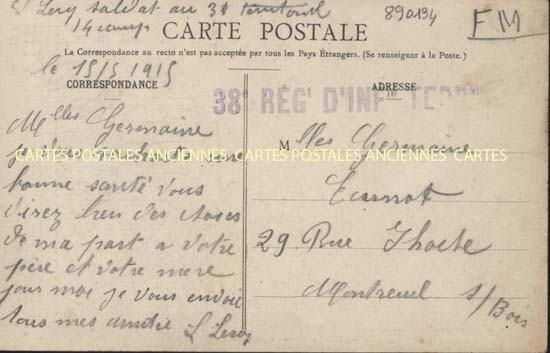 L Leroy soldat au 38 territorial
14 comp
890134
FM
CARTE POSTALE
La Correspondance au recto n'est pas acceptée par tous les Pays Étrangers. (Se renseigner à la Poste.)
le 15/5 1915
CORRESPONDANCE
ADRESSE
38e RÉGt D'INFie TERR
Melles Germaine
je
CARTES POSTALES ANCIENNES CARTES POSTALES ANCIENNES CARTES
bonne santé Vous
direz bien des choses
de ma part a votre
père et votre mère
pour moi je vous envoie
tous mes amitié L Leroy
Melles Germaine
29 Rue
Montreuil s/Bois